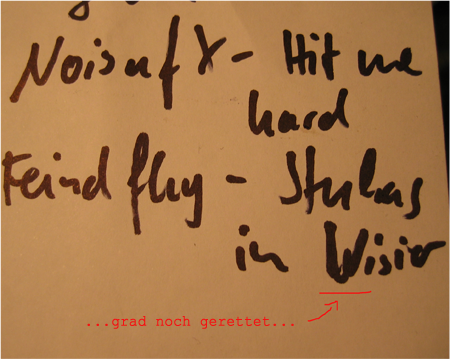 Noisuf X - Hit me
hard
Feindflug - Stukas
im Wisier
...grad noch gerettet...